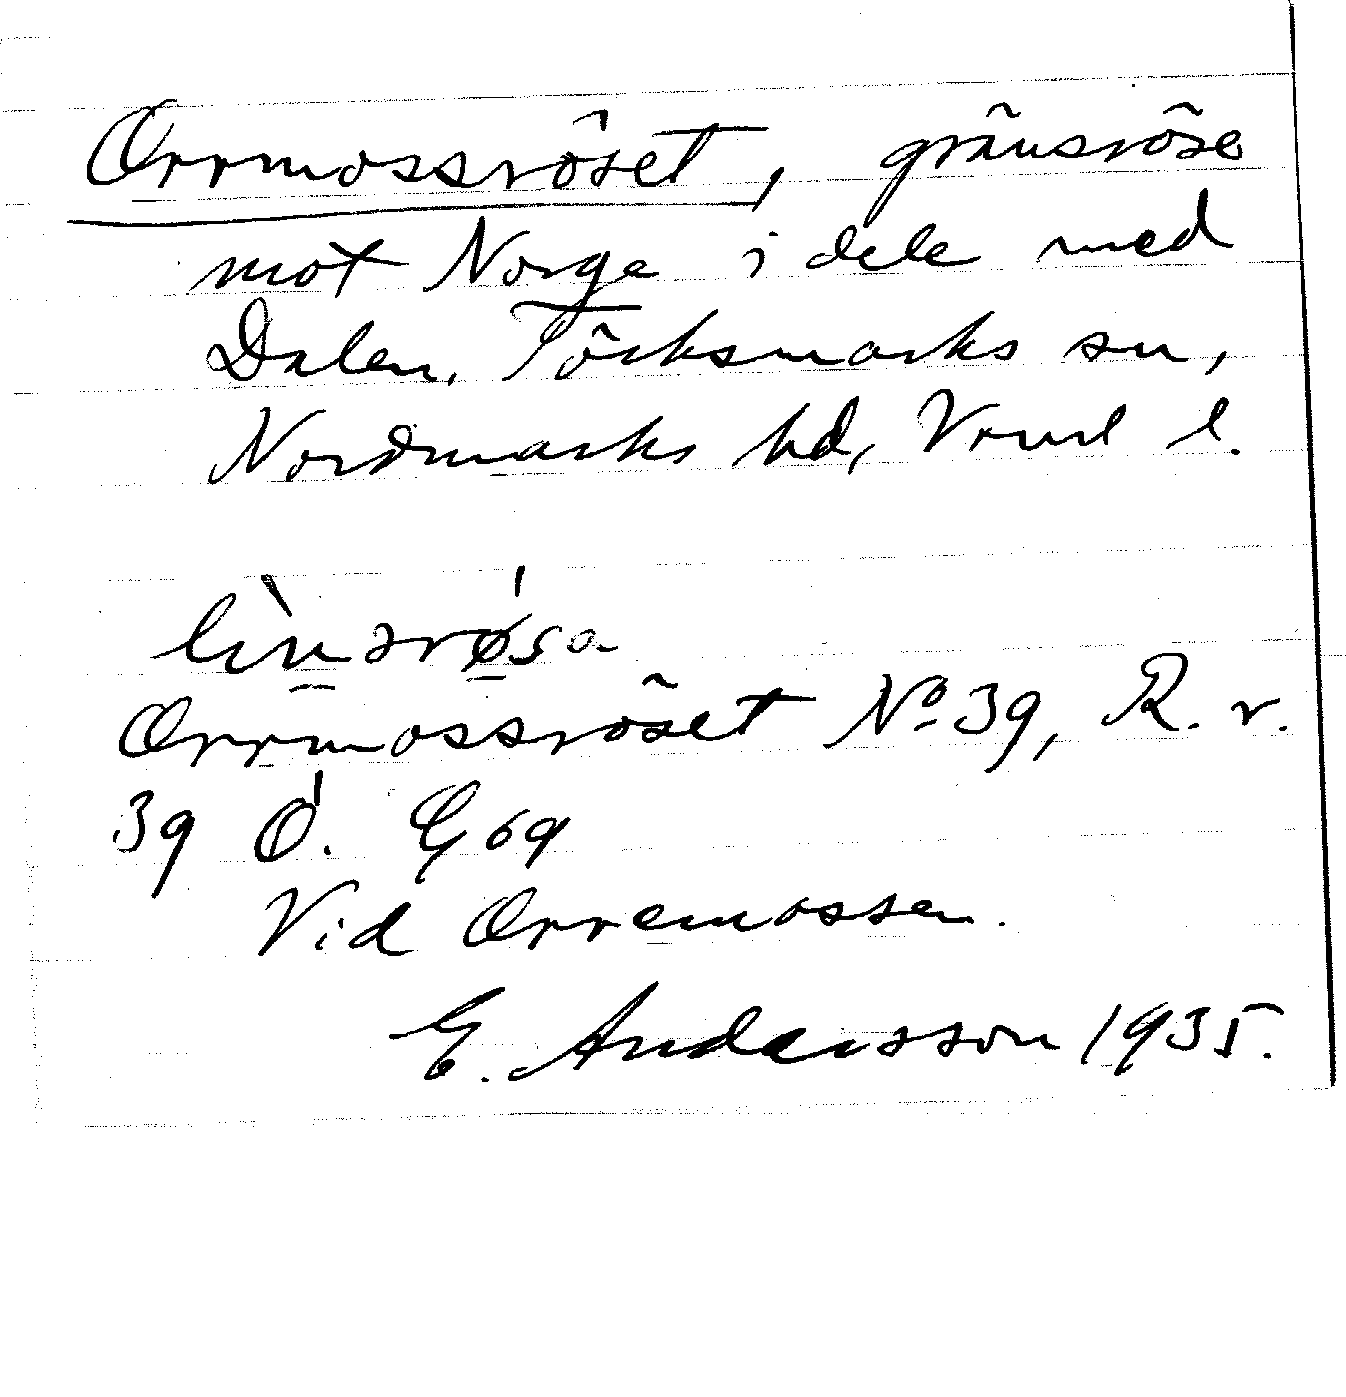 Orrmossröset, gränsröse
mot Norge i dele med
Dalen, Töcksmarks sn,
Nordmarks hd, Vrml l.
Orrmossröset No 39, R. r.
39 Ö. G 69
Vid Orremossen.
E. Andersson 1935.